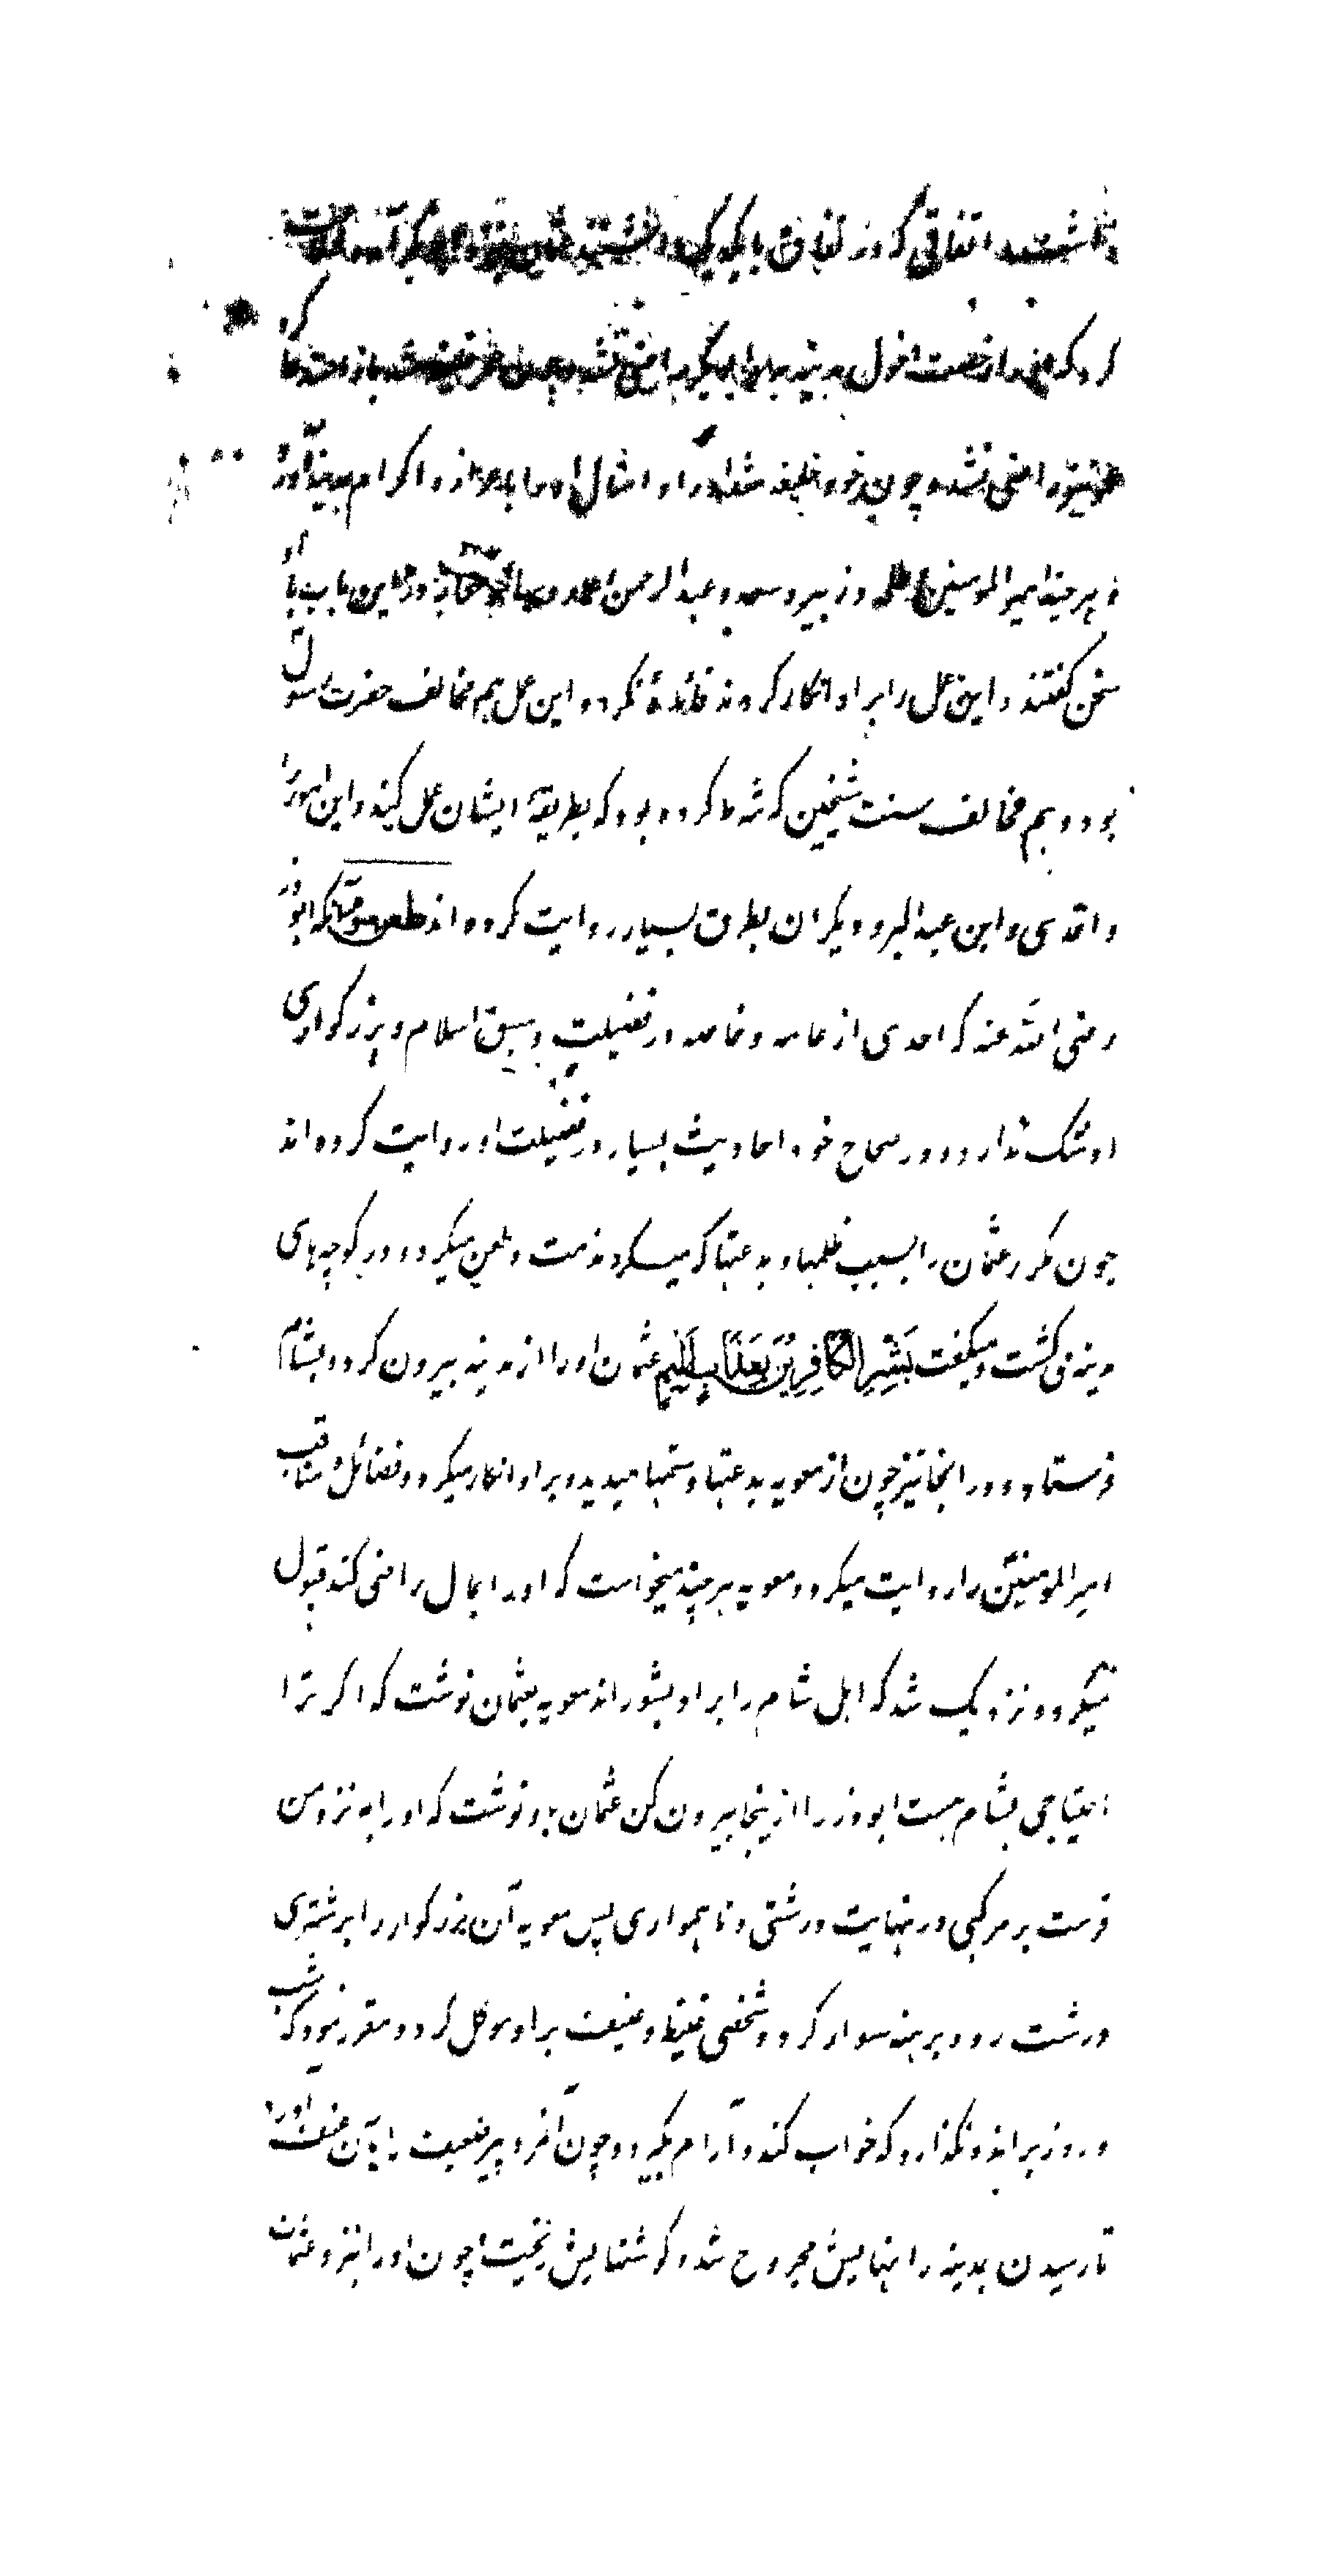 داشتند اتفاقی که در نفاق با یکدیگر داشتند
کرد که او را رخصت دخول مدینه بدهد ابوبکر راضی نشد و چون عمر خلیفه شد باز استدعا کرد
عمر نیز راضی نشد و چون خود خلیفه شد او را و امثال او را با اعزاز و اکرام بمدینه آورد
و هر چند امیر المومنین و طلحه و زبیر و سعد و عبد الرحمن و سایر صحابه درین باب با او
سخن گفتند و این عمل را بر او انکار کردند فائده نکرد و این عمل هم مخالف حضرت رسول
بود و هم مخالف سنت شیخین که شرط کرده بود که بطریقه ایشان عمل کند و این امور را
واقدی و ابن عبد البر و دیگران بطرق بسیار روایت کرده اند طعن سوم آنکه ابوذر
رضی الله عنه که احدی از عامه و خاصه در فضیلت و سبق اسلام و بزرگواری
او شک ندارد و در صحاح خود احادیث بسیار در فضیلت او روایت کرده اند
چون مکرر عثمان را بسبب ظلمها و بدعتها که میکرد مذمت و طعن میکرد و در کوچه های
مدینه می گشت و میگفت بَشِّرِ الْكَافِرِيْنَ بِعَذَابٍ اَلِيْمٍ عثمان او را از مدینه بیرون کرد و بشام
فرستاد و در انجا نیز چون از معویه بدعتها و ستمها میدید و بر او انکار میکرد و فضائل و مناقب
امیر المومنین را روایت میکرد و معویه هر چند میخواست که او را بمال راضی کند قبول
نمیکرد و نزدیک شد که اهل شام را بر او بشوراند معویه بعثمان نوشت که اگر ترا
احتیاجی بشام هست ابوذر را ازینجا بیرون کن عثمان باو نوشت که او را به نزد من
فرست بر مرکبی در نهایت درشتی و ناهمواری پس معویه آن بزرگوار را بر شتری
درشت رو و برهنه سوار کرد و شخصی غلیظ و عنیف بر او موکل کرد و مقرر نمود که شب
و روز براند و نگذارد که خواب کند و آرام بگیرد و چون آنمرد پیر ضعیف را بآن عنف آورد
تا رسیدن بمدینه رانهایش مجروح شد و گوشتهایش ریخت و چون او را بنزد عثمان